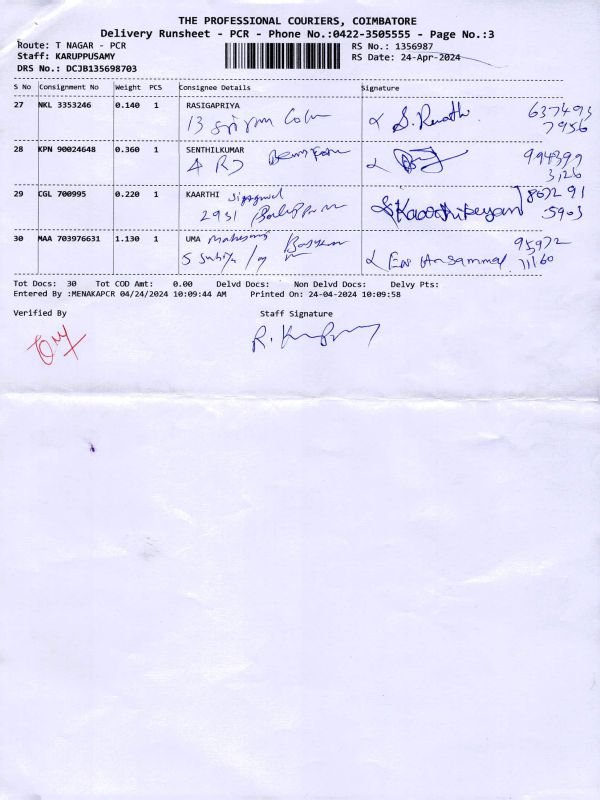 THE PROFESSIONAL COURIERS, COIMBATORE
Delivery Runsheet - PCR - Phone No.:0422-3505555 - Page No.:3
Route: T NAGAR - PCR
RS No.: 1356987
Staff: KARUPPUSAMY
RS Date: 24-Apr-2024
DRS No.: DCJB135698703
S No Consignment No Weight PCS Consignee Details Signature
27 NKL 3353246 0.140 1 RASIGAPRIYA
13
637493
7956
28 KPN 90024648 0.360 1 SENTHILKUMAR
994399
3126
29 CGL 700995 0.220 1 KAARTHI
2931
Kaarthikeyan
5903
30 MAA 703976631 1.130 1 UMA
5
95972
11160
Tot Docs: 30 Tot COD Amt: 0.00 Delvd Docs: Non Delvd Docs: Delvy Pts:
Entered By :MENAKAPCR 04/24/2024 10:09:44 AM Printed On: 24-04-2024 10:09:58
Verified By Staff Signature